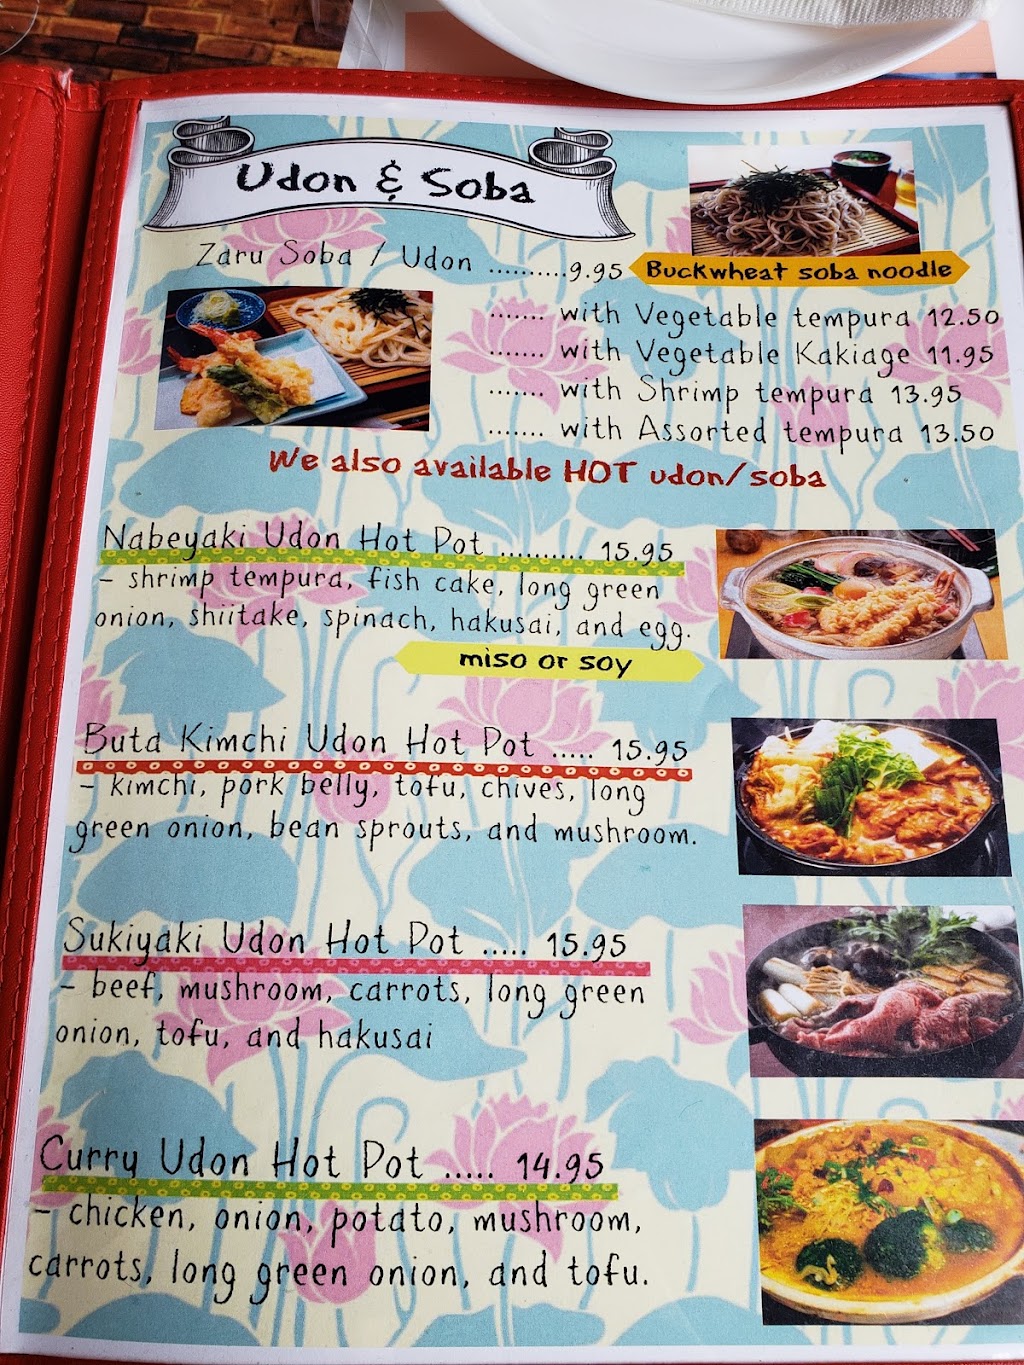 Udon & Soba
Zaru Soba / Udon ..........9.95
Buckwheat soba noodle
....... with Vegetable tempura 12.50
....... with Vegetable Kakiage 11.95
....... with Shrimp tempura 13.95
....... with Assorted tempura 13.50
We also available HOT udon/soba
Nabeyaki Udon Hot Pot .......... 15.95
- shrimp tempura, fish cake, long green
onion, shiitake, spinach, hakusai, and egg.
miso or soy
Buta Kimchi Udon Hot Pot ..... 15.95
- kimchi, pork belly, tofu, chives, long
green onion, bean sprouts, and mushroom.
Sukiyaki Udon Hot Pot ..... 15.95
- beef, mushroom, carrots, long green
onion, tofu, and hakusai
Curry Udon Hot Pot ..... 14.95
- chicken, onion, potato, mushroom,
carrots, long green onion, and tofu.